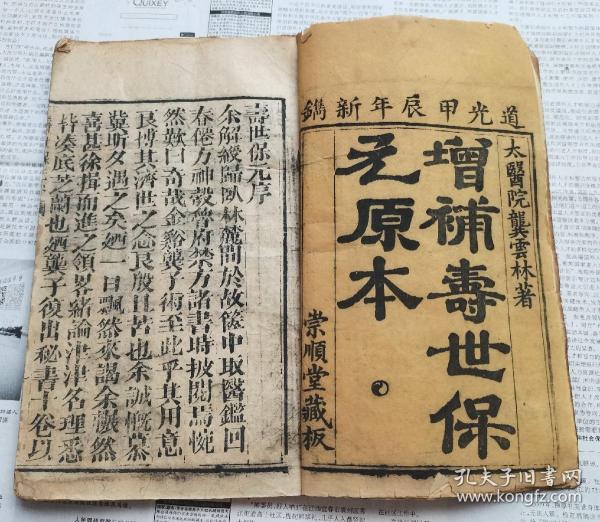 道光甲辰年新鐫
太醫院龔雲林著
增補壽世保
元原本
崇順堂藏板
壽世保元序
余解綬歸臥林麓間於故篋中取醫鑑回
春倦方神彀魯府禁方諸書時披閱焉惋
然歎曰奇哉金谿龔子術至此乎其用意
良博其濟世之念良殷且苦也余誠慨慕
冀斯夕遇之矣廼一日飄然來謁余囅然
喜甚徐揖而進之領畧緒論津津名理悉
皆湊底芝蘭也廼龔子復出秘書十卷以
QUIXEY
孔夫子旧书网
www.kongfz.com